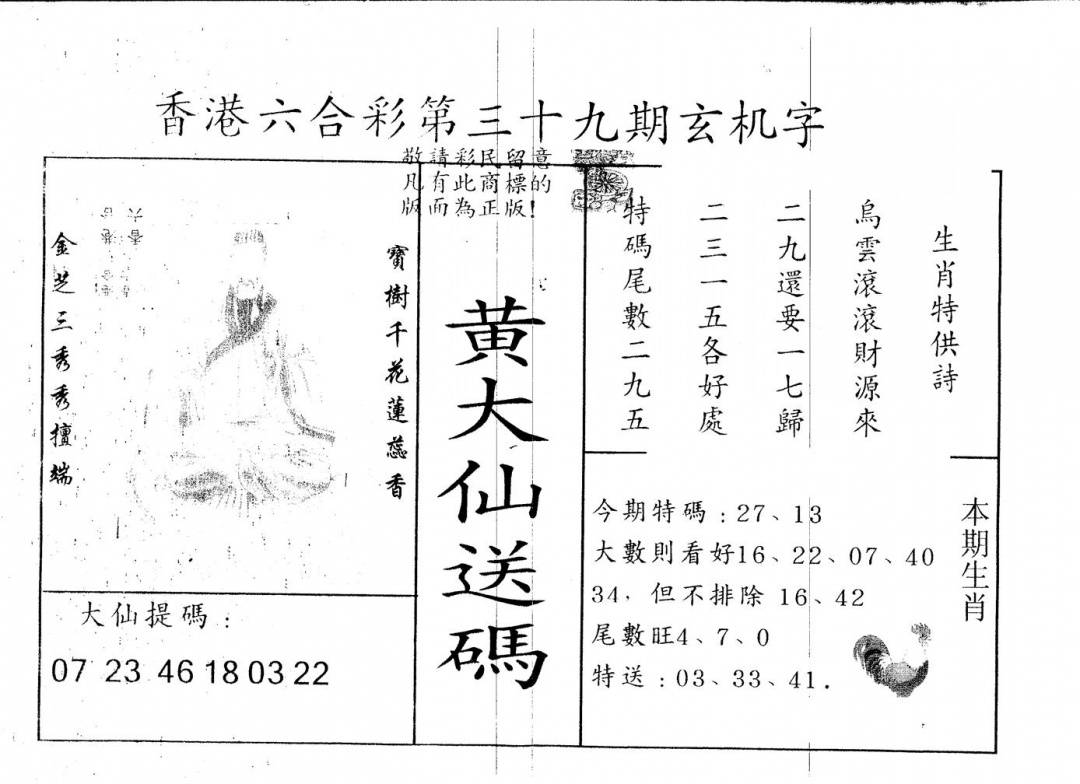 香港六合彩第三十九期玄机字
敬請彩民留意
凡有此商標的
版面為正版!
寶樹千花蓮蕊香
金芝三秀秀擅端
大仙提碼：
07 23 46 18 03 22
黄大仙送碼
生肖特供詩
烏雲滾滾財源來
二九還要一七歸
二三一五各好處
特碼尾數二九五
本期生肖
今期特碼：27、13
大數則看好16、22、07、40
34，但不排除 16、42
尾數旺4、7、0
特送：03、33、41.